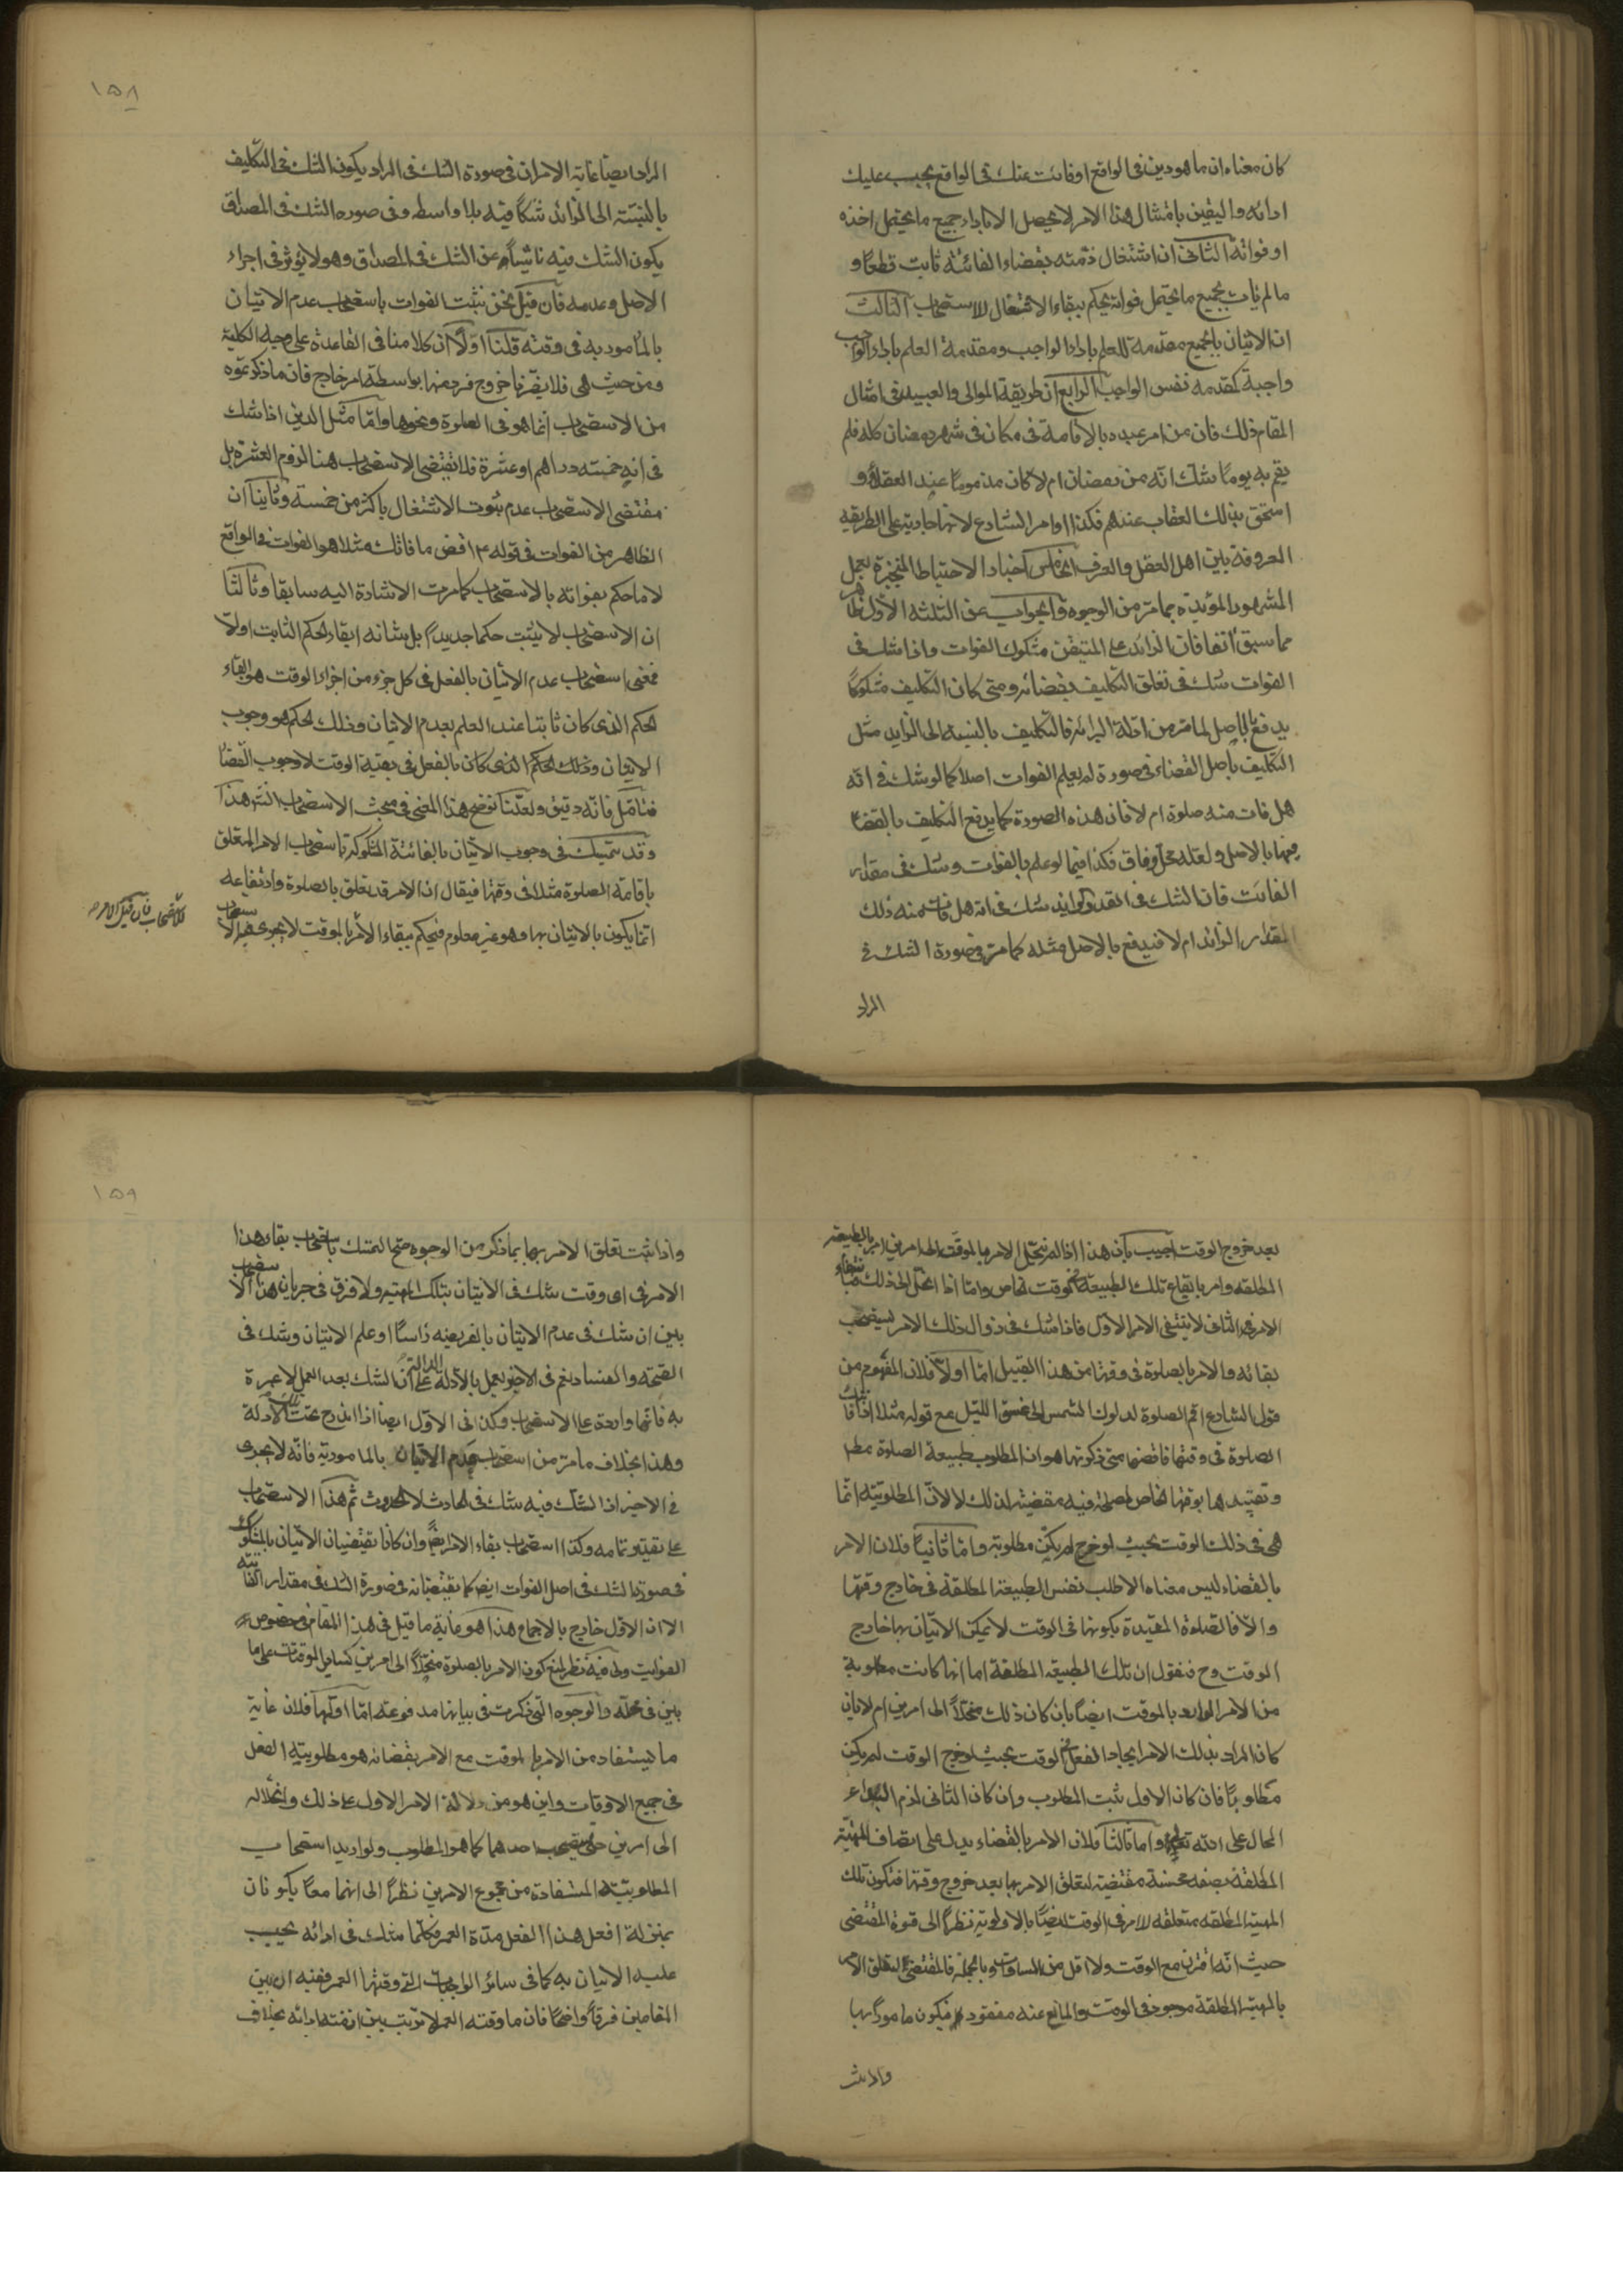 كان معناه ان ما هو دين فى الواقع او فائت عنك فى الواقع يجب عليك
ادائه واليقين بامتثال هذا الامر لا يحصل الا باداء جميع ما يحتمل اخذه
او فواته الثانى ان اشتغال ذمته بقضاء الفائتة ثابت قطعا و
ما لم يات بجميع ما يحتمل فواته يحكم ببقاء الاشتغال للاستصحاب الثالث
ان الاتيان بالجميع مقدمة للعلم باداء الواجب ومقدمة العلم باداء الواجب
واجبة كمقدمه نفس الواجب الرابع ان طريقة الموالى والعبيد فى امثال
المقام ذلك فان من امر عبده بالاقامة فى مكان فى شهر رمضان كله فلم
يقم به يوما شك انه من رمضان ام لا كان مذموما عند العقلاء و
استحق بذلك العقاب عندهم فكذا اوامر الشارع لانها جارية على الطريقه
المعروفة بين اهل العقل والعرف الخامس اخبار الاحتياط المنجبرة بعمل
المشهور المؤيده بما مر من الوجوه والجواب عن الثلثه الاول ظاهر
مما سبق انفا فان الزائد على المتيقن مشكوك الفوات واذا شك فى
الفوات شك فى تعلق التكليف بقضائه ومتى كان التكليف مشكوكا
يدفع بالاصل لما مر من ادلة البرائة فالتكليف بالنسبه الى الزايد مثل
التكليف باصل القضاء فى صورة لم يعلم الفوات اصلا كما لو شك فى انه
هل فات منه صلوة ام لا فان هذه الصورة كما يدفع التكليف بالقضاء
فيها بالاصل ولعله محل وفاق فكذا فيما لو علم بالفوات وشك فى مقدار
الفائت فان الشك فى القدر الزايد شك فى انه هل فات منه ذلك
المقدار الزائد ام لا فيدفع بالاصل مثله كما مر فى صورة الشك فى
المراد
١٥٨
المراد ايضا غاية الامر ان فى صورة الشك فى المراد يكون الشك فى التكليف
بالنسبة الى الزائد شكا فيه بلا واسطه وفى صوره الشك فى المصداق
يكون الشك فيه ناشيا عن الشك فى المصداق وهو لا يؤثر فى اجراء
الاصل وعدمه فان قيل نحن نثبت الفوات باستصحاب عدم الاتيان
بالمأمور به فى وقته قلنا اولا ان كلامنا فى القاعدة على وجه الكلية
ومن حيث هى فلا يضرنا خروج فرد منها بواسطة امر خارج فان ما ذكرتموه
من الاستصحاب انما هو فى الصلوة ونحوها واما مثل الدين اذا شك
فى انه خمسة دراهم او عشرة فلا يقتضى الاستصحاب هنا لزوم العشرة بل
مقتضى الاستصحاب عدم ثبوت الاشتغال باكثر من خمسة وثانيا ان
الظاهر من الفوات فى قوله ع اقض ما فاتك مثلا هو الفوات فى الواقع
لا ما حكم بفواته بالاستصحاب كما مرت الاشارة اليه سابقا وثالثا
ان الاستصحاب لا يثبت حكما جديدا بل شانه ابقاء الحكم الثابت اولا
فمعنى استصحاب عدم الاتيان بالفعل فى كل جزء من اجزاء الوقت هو ابقاء
الحكم الذى كان ثابتا عند العلم بعدم الاتيان وذلك الحكم هو وجوب
الاتيان وذلك الحكم الذى كان بالفعل فى بقية الوقت لا وجوب القضا
فتامل فانه دقيق ولعلنا نوضح هذا المعنى فى مبحث الاستصحاب انش هذا
وقد يتمسك فى وجوب الاتيان بالفائتة المشكوكة باستصحاب الامر المتعلق
باقامة الصلوة مثلا فى وقتها فيقال ان الامر قد تعلق بالصلوة وارتفاعه
انما يكون بالاتيان بها وهو غير معلوم فيحكم ببقاء الامر بالموقت لا يجرى فيه الا
ستصحاب
للاستصحاب فان قيل الامر صح
بعد خروج الوقت اجيب بان هذا اذا لم ينحل الامر بالموقت الى امرين امر بالطبيعة
المطلقه وامر بايقاع تلك الطبيعة فى وقت خاص واما اذا انحل الى ذلك فبانتفاء
الامر الثانى لا ينتفى الامر الاول فاذا شك فى زوال ذلك الامر يستصحب
بقائه والامر بالصلوة فى وقتها من هذا القبيل اما اولا فلان المفهوم من
قول الشارع اقم الصلوة لدلوك الشمس الى غسق الليل مع قوله مثلا اذا فاتتك
الصلوة فى وقتها فاقضها متى ذكرتها هو ان المطلوب طبيعة الصلوة مطم
وتقييدها بوقتها الخاص لمصلحة فيه مقتضية لذلك لا لان المطلوبية انما
هى فى ذلك الوقت بحيث لو خرج لم يكن مطلوبة واما ثانيا فلان الامر
بالقضاء ليس معناه الا طلب نفس الطبيعة المطلقة فى خارج وقتها
والا فالصلوة المقيدة بكونها فى الوقت لا يمكن الاتيان بها خارج
الوقت وح فنقول ان تلك الطبيعه المطلقة اما انها كانت مطلوبة
من الامر الوارد بالموقت ايضا بان كان ذلك منحلا الى امرين ام لا بان
كان المراد بذلك الامر ايجاد الفعل فى الوقت بحيث لو خرج الوقت لم يكن
مطلوبا فان كان الاول ثبت المطلوب وان كان الثانى لزم البداء
المحال على الله تعالى واما ثالثا فلان الامر بالقضاء يدل على اتصاف المهية
المطلقة بصفه محسنة مقتضية لتعلق الامر بها بعد خروج وقتها فتكون تلك
المهية المطلقه متعلقه للامر فى الوقت ايضا بالاولوية نظرا الى قوة المقتضى
حيث انه اقترن مع الوقت ولا اقل من المساوات وبالجملة فالمقتضى لتعلق الامر
بالمهية المطلقة موجود فى الوقت والمانع عنه مفقود فيكون مامورا بها
واذا ثبت
١٥٩
واذا ثبت تعلق الامر بها بما ذكر من الوجوه صح التمسك باستصحاب بقاء هذا
الامر فى اى وقت شك فى الاتيان بتلك المهية ولا فرق فى جريان هذا الاستصحاب
بين ان شك فى عدم الاتيان بالفريضه راسا او علم الاتيان وشك فى
الصحة والفساد نعم فى الاخير يعمل بالادلة الدالة على ان الشك بعد العمل لا عبرة
به فانها واردة على الاستصحاب وكذا فى الاول ايضا اذا اندرج تحت تلك الادلة
وهذا بخلاف ما مر من استصحاب عدم الاتيان بالمامور به فانه لا يجرى
فى الاخير اذ الشك فيه شك فى الحادث لا الحدوث ثم هذا الاستصحاب
على تقدير تمامه وكذا استصحاب بقاء الامر ايضا وان كانا يقتضيان الاتيان بالمشكوك
فى صورة الشك فى اصل الفوات ايض كما يقتضيانه فى صورة الشك فى مقدار الفائتة
الا ان الاول خارج بالاجماع هذا هو غاية ما قيل فى هذا المقام فى خصوص
الفوايت وفيه نظر لمنع كون الامر بالصلوة منحلا الى امرين كساير الموقتات على ما
بين فى محله والوجوه التى ذكرت فى بيانها مدفوعة اما اولها فلان غاية
ما يستفاد من الامر بالموقت مع الامر بقضائه هو مطلوبية الفعل
فى جميع الاوقات واين هو من دلالة الامر الاول على ذلك وانحلاله
الى امرين حتى يستصحب احدهما كما هو المطلوب ولو اريد استصحاب
المطلوبية المستفادة من مجموع الامرين نظرا الى انهما معا يكونان
بمنزلة افعل هذا الفعل مدة العمر فكلما شك فى ادائه يجب
عليه الاتيان به كما فى سائر الواجبات التى وقتها العمر ففيه ان بين
المقامين فرقا واضحا فان ما وقته العمر لا ترتيب بين ازمنة ادائه بخلاف